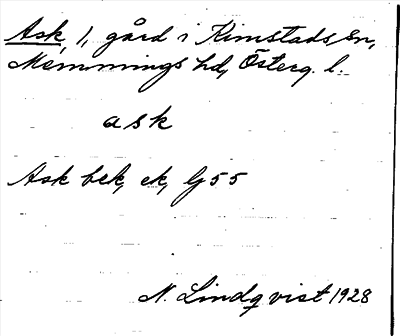 Ask, 1, gård i Kimstads sn,
Memmings hd, Österg. l.
ask
Ask bek, ek, G 55
N. Lindqvist 1928